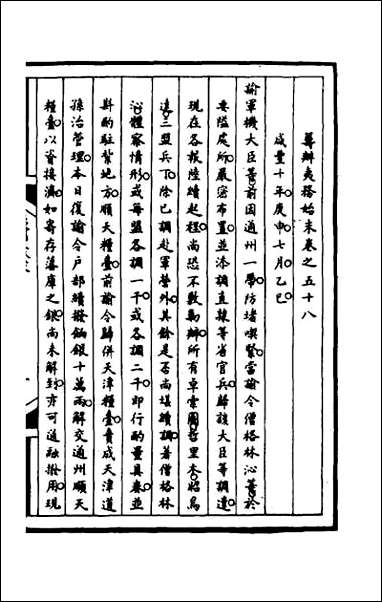 籌辦夷務始末卷之五十八
咸豐十年庚申七月乙巳
諭軍機大臣等前因通州一帶防堵喫緊當諭令僧格林沁等於
要隘處所嚴密布置並添調直隸等省官兵歸該大臣等調遣
現在各報陸續起程尚恐不敷剿辦所有卓索圖哲里木昭烏
達三盟兵丁除已調赴軍營外其餘是否尚堪續調著僧格林
沁體察情形或每盟各調一千或各調二千即行酌量具奏並
斟酌駐紮地方順天糧臺前諭令歸併天津糧臺責成天津道
孫治管理本日復諭令戶部續撥餉銀十萬兩解交通州順天
糧臺以資接濟如寄存藩庫之銀尚未解到亦可通融撥用現